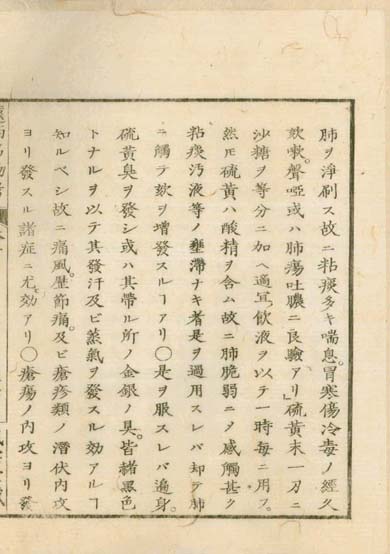 肺ヲ淨刷ス故ニ粘痰多キ喘息。冒寒傷冷毒ノ經久
欬嗽。聲啞或ハ肺瘍吐膿ニ良驗アリ」硫黄末一刀ニ
沙糖ヲ等分ニ加ヘ適宜ノ飲液ヲ以テ一時毎ニ用フ。
然𪜈硫黄ハ酸精ヲ含ム故ニ肺脆弱ニ〆感觸甚ク
粘痰汚液等ノ壅滯ナキ者是ヲ過用スレバ却テ肺
ニ觸テ欬ヲ増發スルヿアリ〇是ヲ服スレバ遍身。
硫黄臭ヲ發シ或ハ其帶ル所ノ金銀ノ具。皆緒黒色
トナルヲ以テ其發汗及ビ蒸氣ヲ發スル効アルヿ
知ルベシ故ニ痛風。歷節痛。及ビ瘡疹類ノ潛伏内攻
ヨリ發スル諸症ニ尤モ効アリ〇瘡瘍ノ内攻ヨリ發